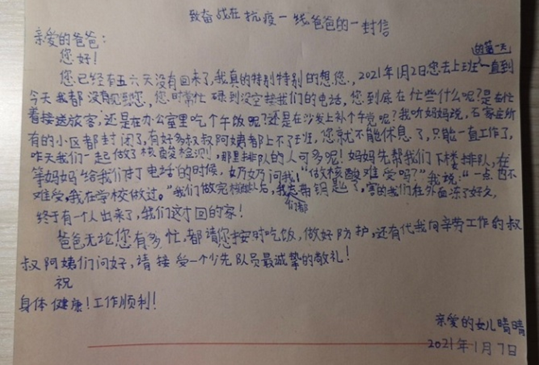 致奋战在抗疫一线爸爸的一封信
亲爱的爸爸:
您好!
您已经有五六天没有回来了,我真的特别特别的想您。2021年1月2日您去上班的第一天一直到
今天我都没见到您,您时常忙碌到没空接我们的电话,您到底在忙些什么呢?是在忙
着接送旅客,还是在办公室里吃个午饭呢?还是在沙发上补个午觉呢?我听妈妈说,石家庄所
有的小区都封闭了,有好多叔叔阿姨都上不了班,您就不能休息了,只能一直工作了,
昨天我们一起做了核酸检测!哪里排队的人可多呢!妈妈先帮我们下楼排队,在
等妈妈给我们打电话的时候,奶奶问我:"做核酸难受吗?"我说:"一点也不
难受,我在学校做过。"我们做完核酸后,我忘带钥匙了,害的我们在外面冻了好久,
终于有一个人出来了,我们这才回的家!
爸爸无论您有多忙,都请您按时吃饭,做好防护,还有代我向辛劳工作的叔
叔阿姨们问好,请接受一个少先队员最诚挚的敬礼!
祝
身体健康!工作顺利!
亲爱的女儿晴晴
2021年1月7日